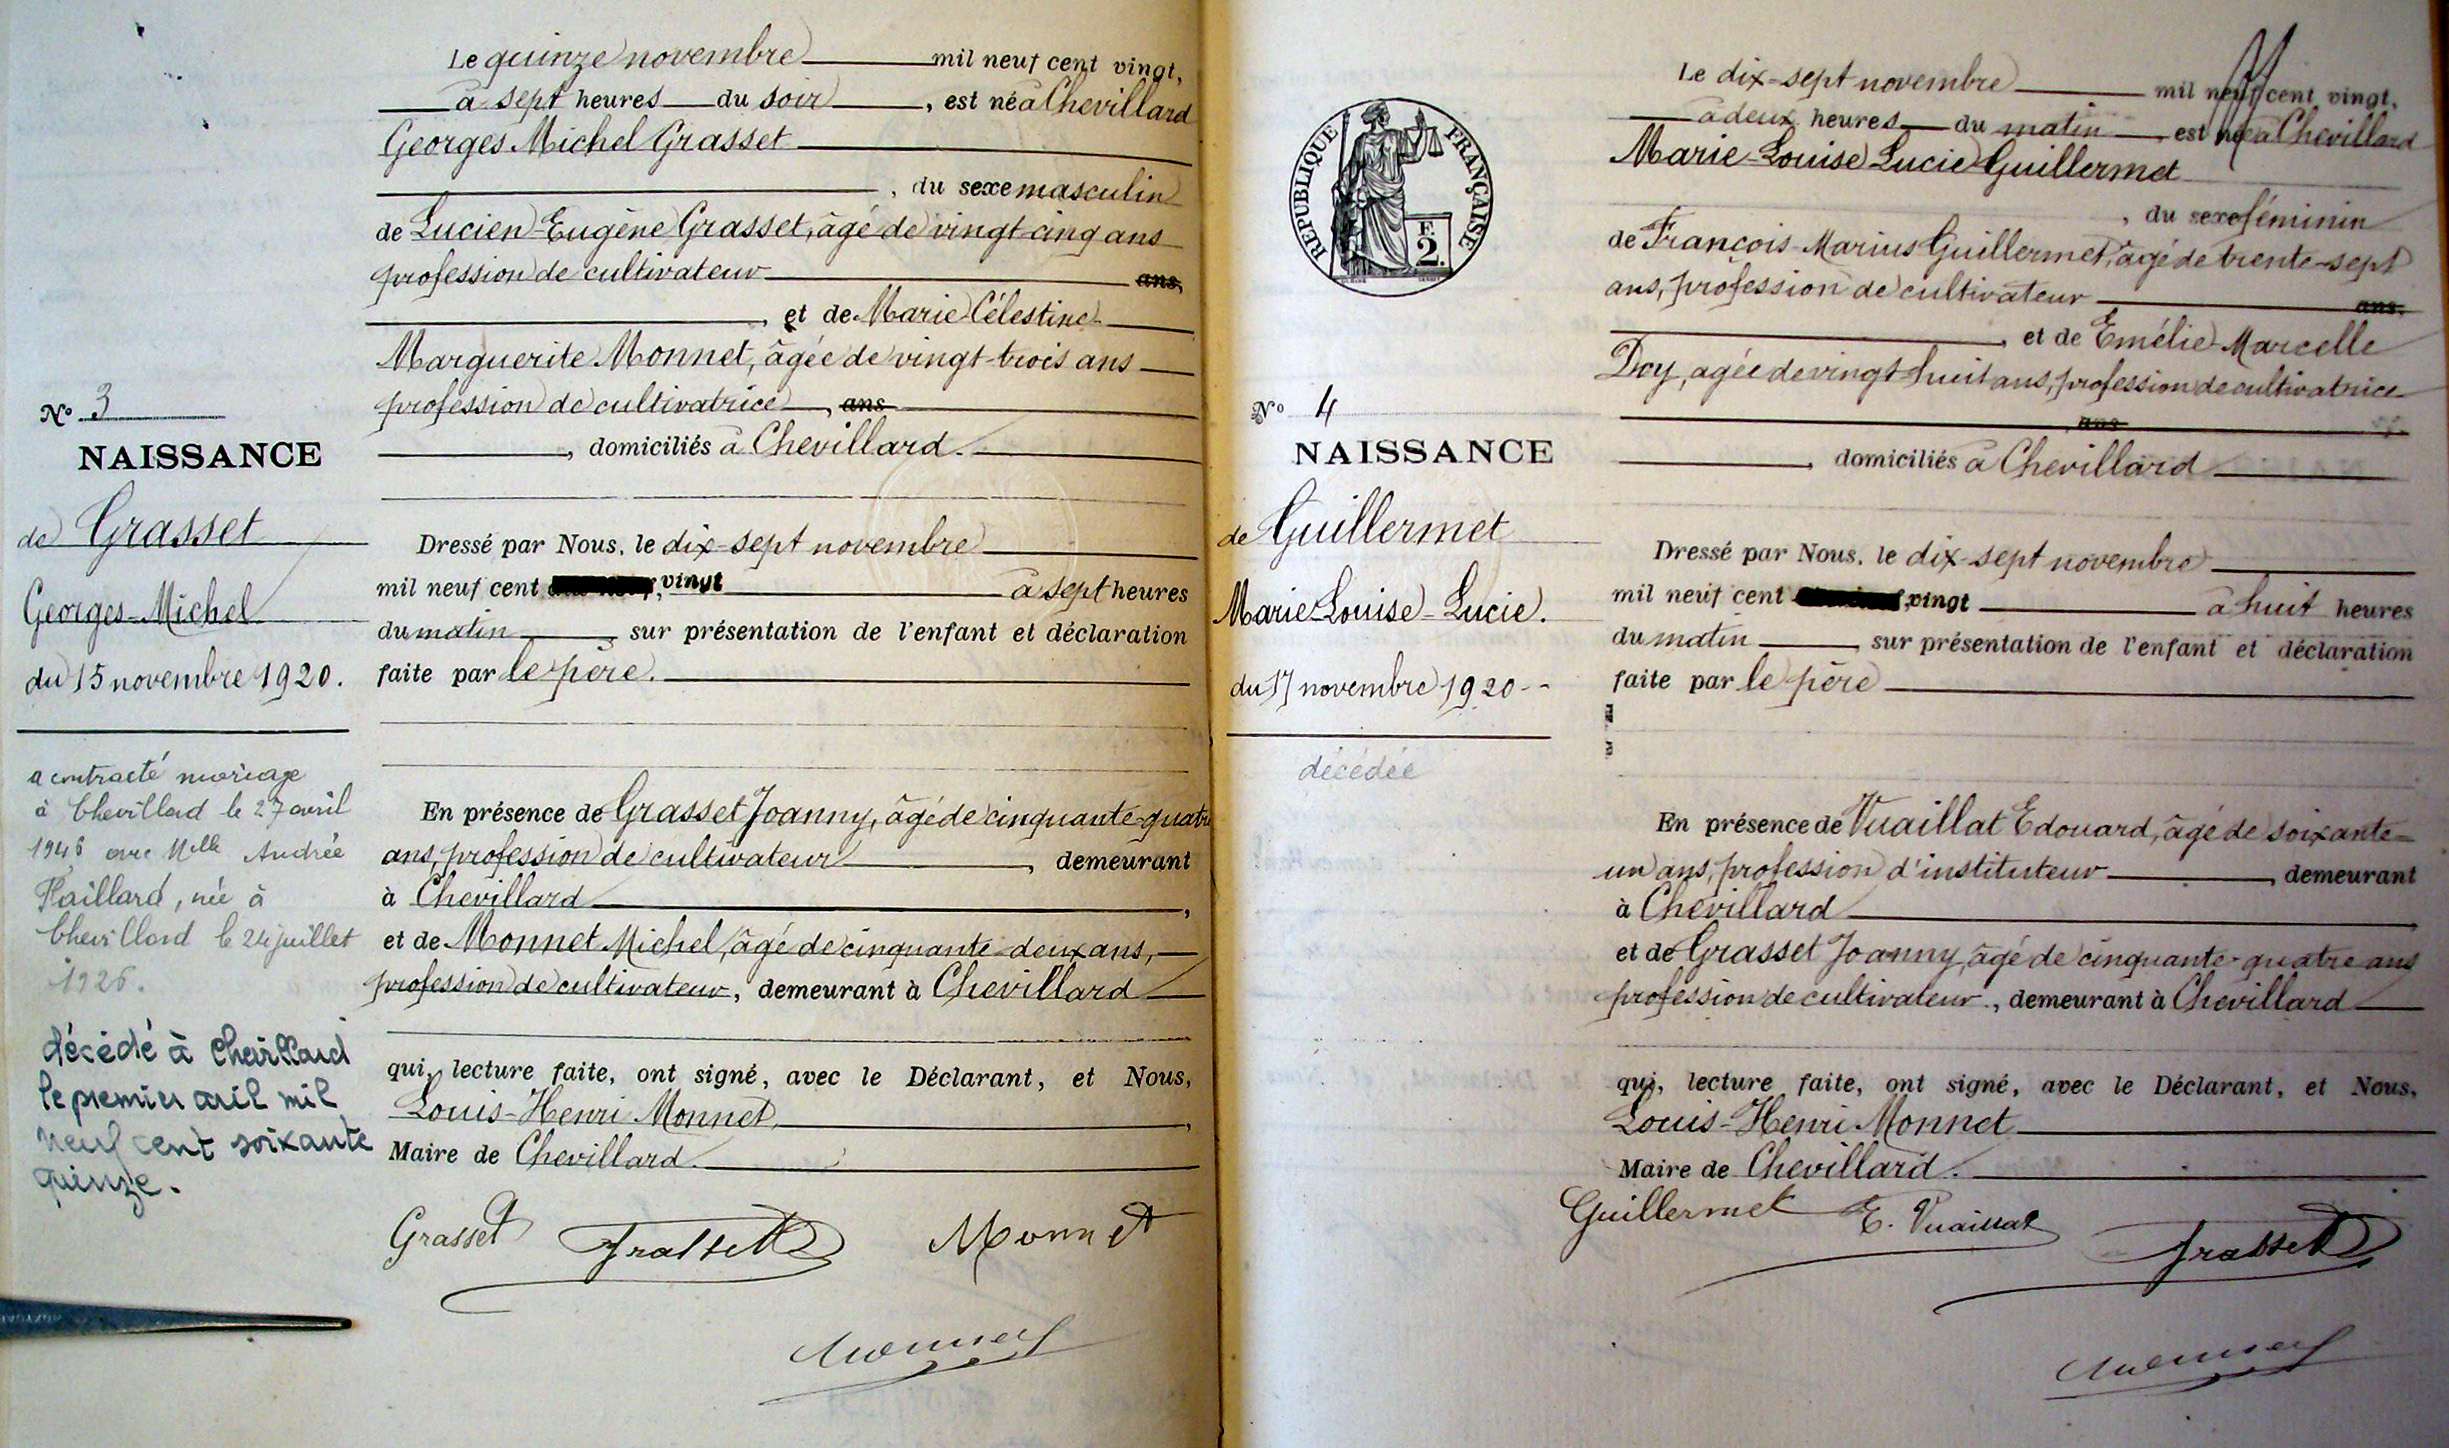 Le quinze novembre mil neuf cent vingt,
à sept heures du soir, est né à Chevillard
Georges Michel Grasset
, du sexe masculin
de Lucien-Eugène Grasset, âgé de vingt-cinq ans
profession de cultivateur ans,
, et de Marie Célestine
Marguerite Monnet, âgée de vingt-trois ans
profession de cultivatrice, ans
, domiciliés à Chevillard.
Nº 3
NAISSANCE
de Grasset
Georges-Michel
du 15 novembre 1920.
Dressé par Nous, le dix-sept novembre
mil neuf cent vingt à sept heures
du matin, sur présentation de l'enfant et déclaration
faite par le père.
a contracté mariage
à Chevillard le 27 avril
1946 avec Melle Andrée
Paillard, née à
Chevillard le 24 juillet
1926.
décédé à Chevillard
le premier avril mil
neuf cent soixante
quinze.
En présence de Grasset Joanny, âgé de cinquante-quatre
ans, profession de cultivateur, demeurant
à Chevillard,
et de Monnet Michel, âgé de cinquante-deux ans,
profession de cultivateur, demeurant à Chevillard
qui, lecture faite, ont signé, avec le Déclarant, et Nous,
Louis-Henri Monnet,
Maire de Chevillard.
Grasset Grasset Monnet
Monnet
RÉPUBLIQUE FRANÇAISE
F.
2.
Le dix-sept novembre mil neuf cent vingt,
à deux heures du matin, est née à Chevillard
Marie-Louise Lucie Guillermet
, du sexe féminin
de François-Marius Guillermet, âgé de trente-sept
ans, profession de cultivateur ans,
, et de Emélie Marcelle
Doy, agée de vingt-huit ans, profession de cultivatrice
ans
, domiciliés à Chevillard
Nº 4
NAISSANCE
de Guillermet
Marie-Louise-Lucie.
du 17 novembre 1920
décédée
Dressé par Nous, le dix-sept novembre
mil neuf cent vingt à huit heures
du matin, sur présentation de l'enfant et déclaration
faite par le père
En présence de Vuaillat Edouard, âgé de soixante-
un ans, profession d'instituteur, demeurant
à Chevillard,
et de Grasset Joanny, âgé de cinquante-quatre ans
profession de cultivateur, demeurant à Chevillard
qui, lecture faite, ont signé, avec le Déclarant, et Nous,
Louis-Henri Monnet
Maire de Chevillard.
Guillermet E. Vuaillat Grasset
Monnet